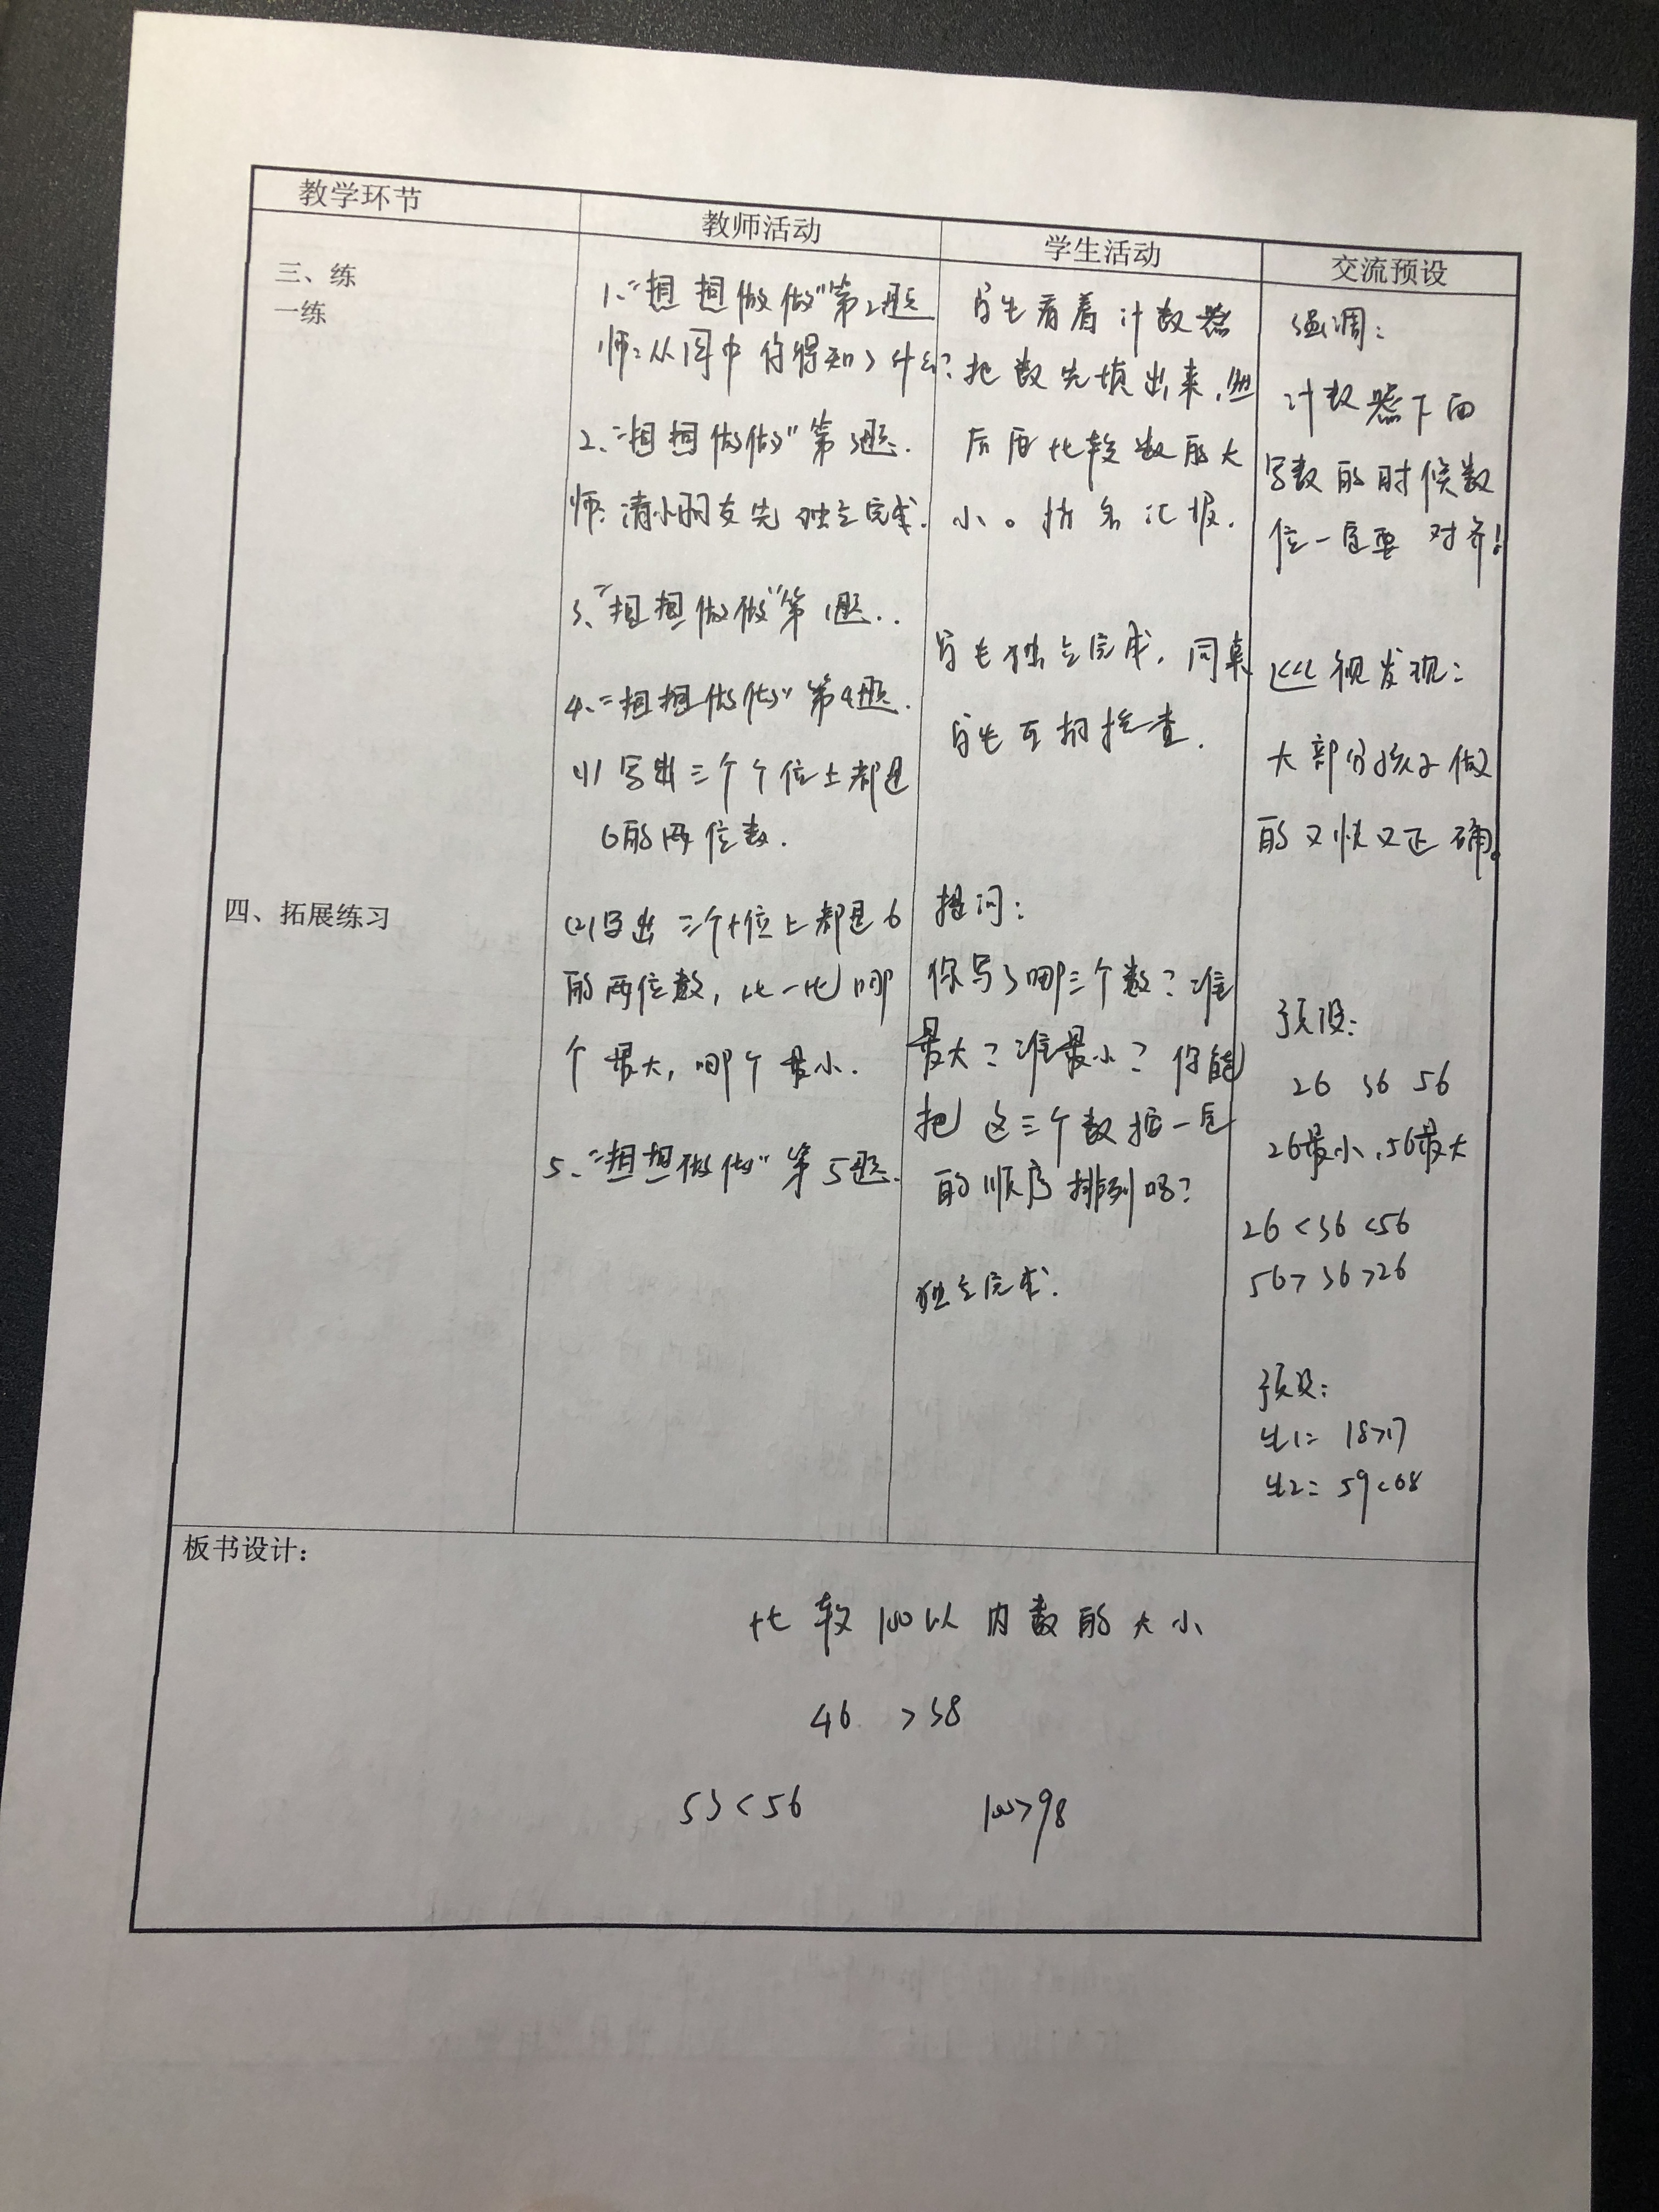 教学环节
教师活动
学生活动
交流预设
三、练
一练
1、“想想做做”第2题
师:从图中你得知了什么?
2、“想想做做”第3题.
师:请小朋友先独立完成.
3、“想想做做”第1题..
4、“想想做做”第4题.
(1)写出三个个位上都是
6的两位数.
四、拓展练习
(2)写出三个十位上都是6
的两位数,比一比哪
个最大,哪个最小.
5、“想想做做”第5题.
学生看着计数器
把数先填出来,然
后再比较数的大
小。指名汇报.
学生独立完成,同桌
学生互相检查.
提问:
你写了哪三个数?谁
最大?谁最小?你能
把这三个数按一定
的顺序排列吗?
独立完成.
强调:
计数器下面
写数的时候数
位一定要对齐!
巡视发现:
大部分孩子做
的又快又正确。
预设:
26 36 56
26最小,56最大
26<36<56
56>36>26
预设:
生1: 18>17
生2: 59<68
板书设计:
比较100以内数的大小
46 >38
53<56 100>98